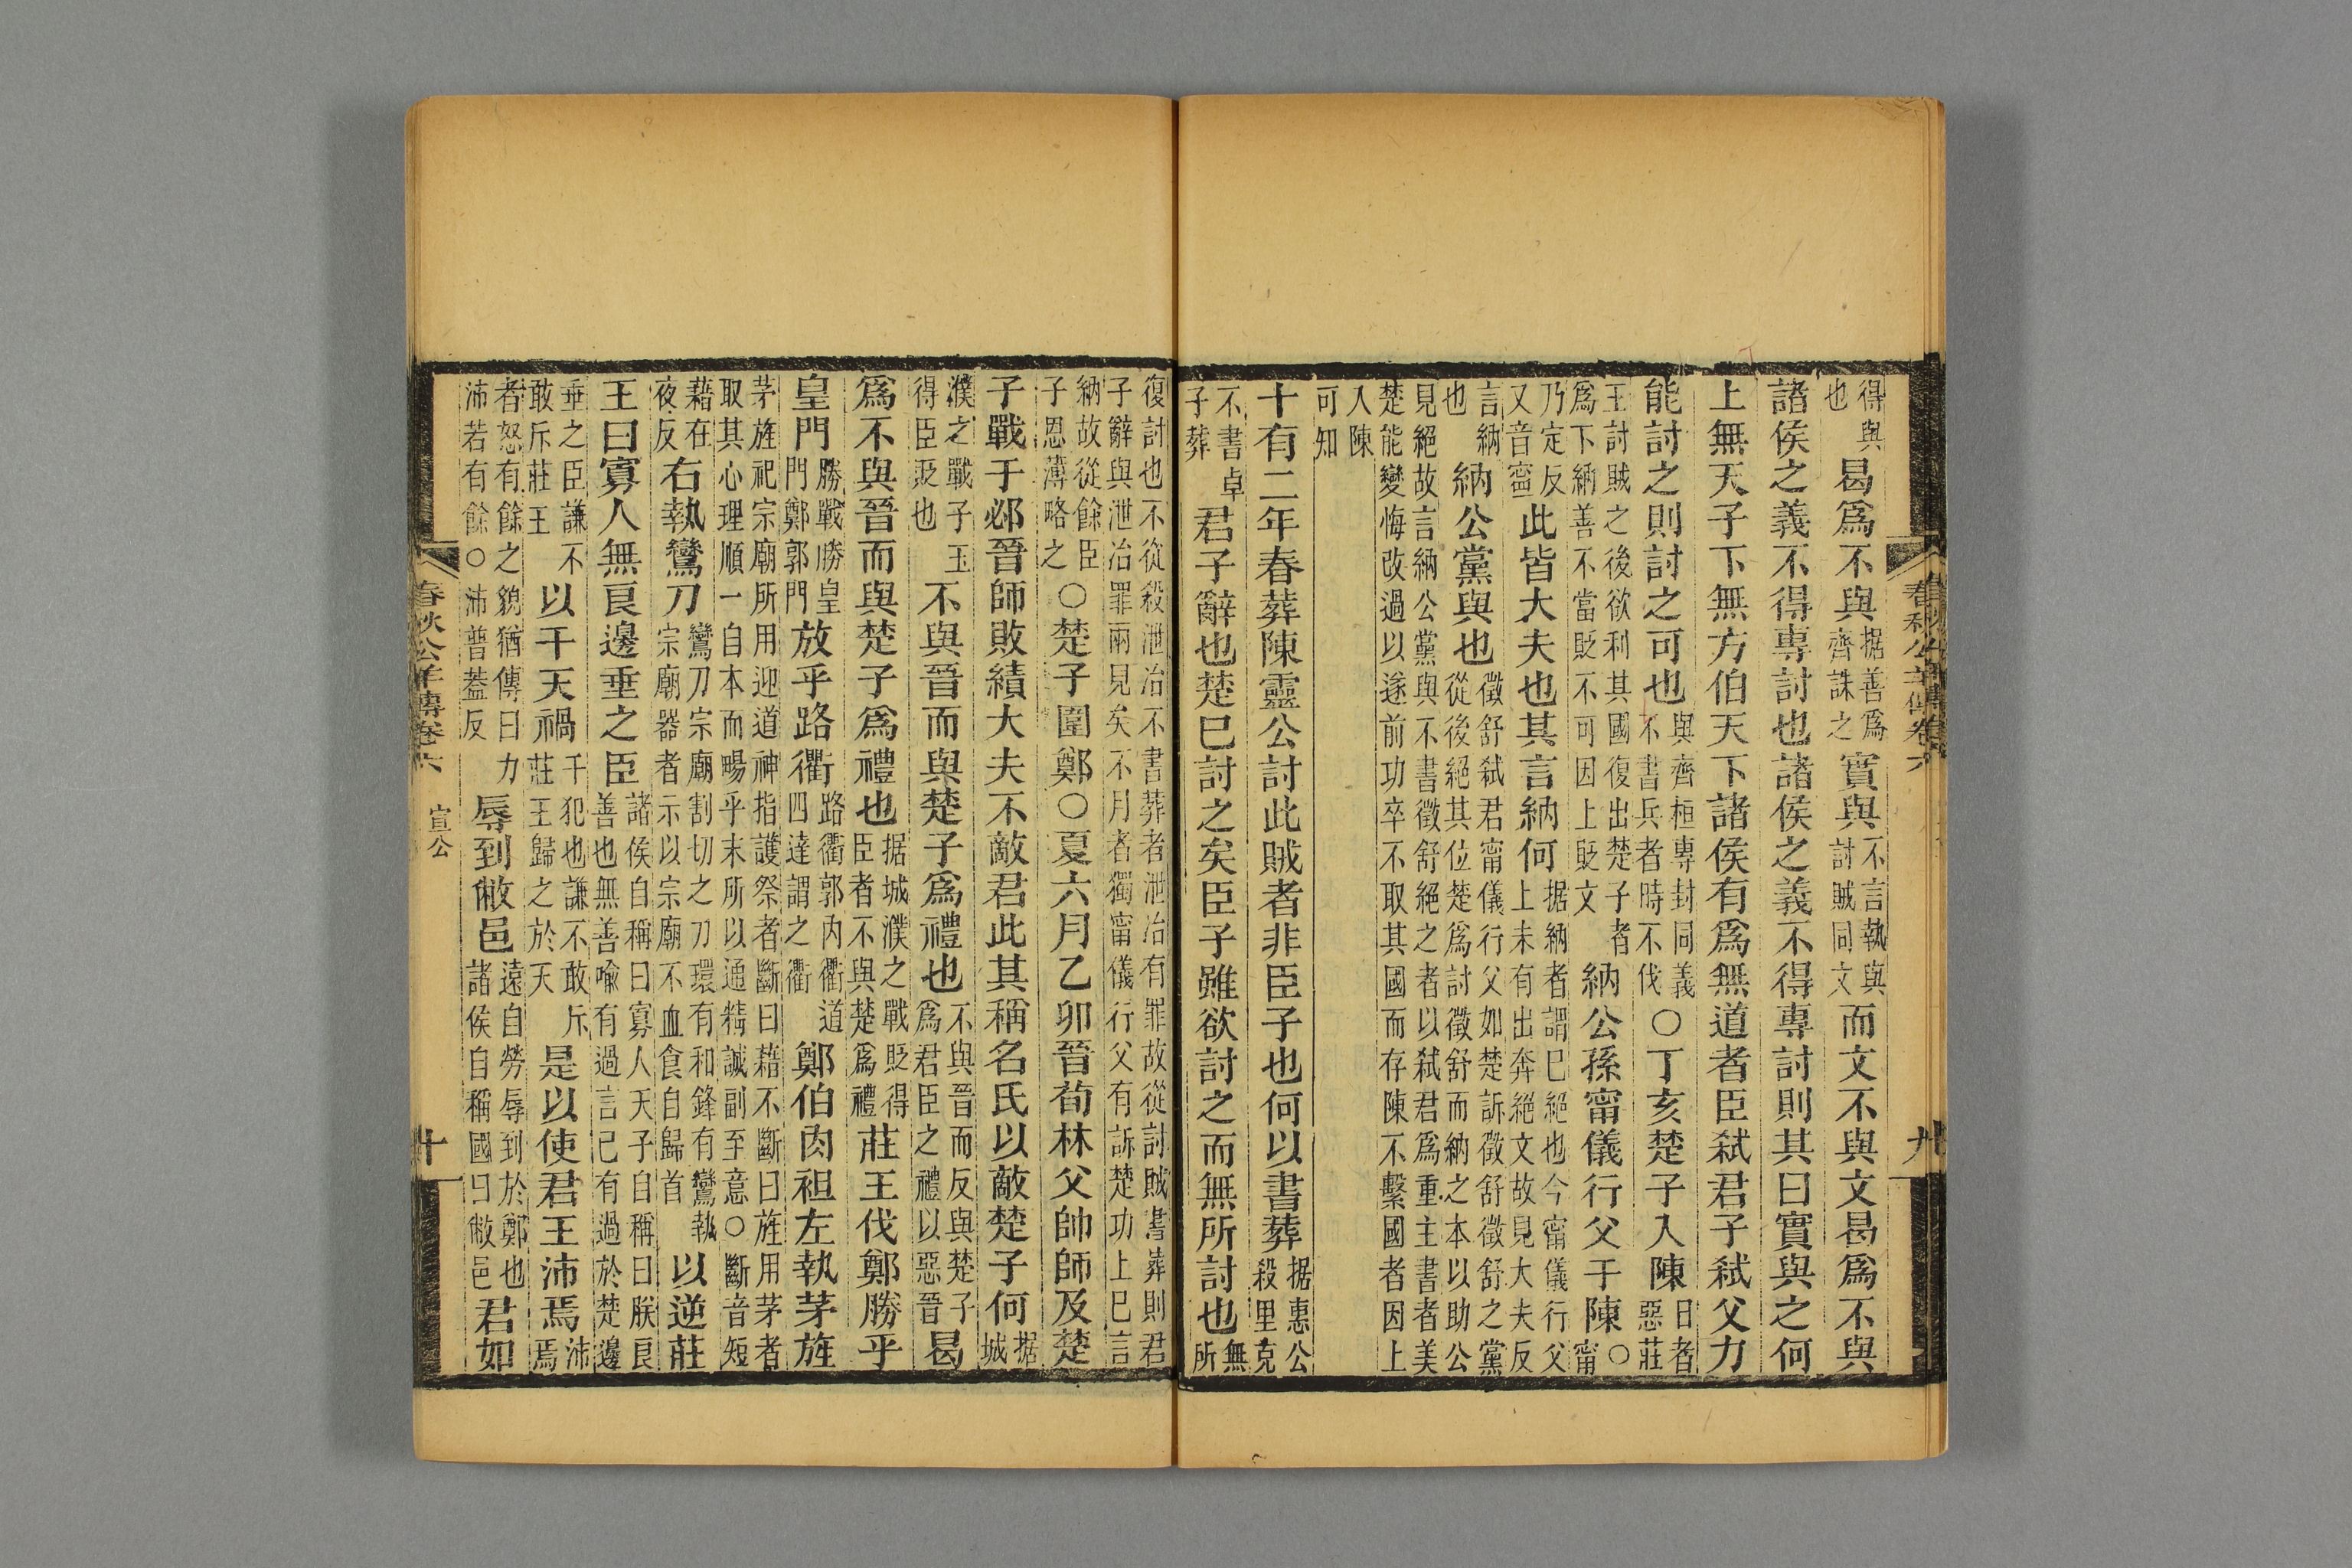 得與也曷爲不與据善爲齊誅之實與不言執與討賊同文而文不與文曷爲不與
諸侯之義不得專討也諸侯之義不得專討則其曰實與之何
上無天子下無方伯天下諸侯有爲無道者臣弒君子弒父力
能討之則討之可也與齊桓專封同義不書兵者時不伐○丁亥楚子入陳日者惡莊
王討賊之後欲利其國復出楚子者爲下納善不當貶不可因上貶文納公孫甯儀行父于陳○甯
乃定反又音甯此皆大夫也其言納何据納者謂已絕也今甯儀行父上未有出奔絕文故見大夫反
言納也納公黨與也徵舒弒君甯儀行父如楚訴徵舒徵舒之黨從後絕其位楚爲討徵舒而納之本以助公
見絕故言納公黨與不書徵舒絕之者以弒君爲重主書者美楚能變悔改過以遂前功卒不取其國而存陳不繫國者因上
人陳可知
十有二年春葬陳靈公討此賊者非臣子也何以書葬据惠公殺里克
不書卓子葬君子辭也楚已討之矣臣子雖欲討之而無所討也無所
復討也不從殺泄冶不書葬者泄冶有罪故從討賊書葬則君子辭與泄冶罪兩見矣不月者獨甯儀行父有訴楚功上已言
納故從餘臣子恩薄略之○楚子圍鄭○夏六月乙卯晉荀林父帥師及楚
子戰于邲晉師敗績大夫不敵君此其稱名氏以敵楚子何据城
濮之戰子玉得臣貶也不與晉而與楚子爲禮也不與晉而反與楚子爲君臣之禮以惡晉曷
爲不與晉而與楚子爲禮也据城濮之戰貶得臣者不與楚爲禮莊王伐鄭勝乎
皇門勝戰勝皇門鄭郭門放乎路衢路衢郭內衢道四達謂之衢鄭伯肉袒左執茅旌
茅旌祀宗廟所用迎道神指護祭者斷曰藉不斷曰旌用茅者取其心理順一自本而暢乎末所以通精誠副至意○斷音短
藉在夜反右執鸞刀鸞刀宗廟割切之刀環有和鋒有鸞執宗廟器者示以宗廟不血食自歸首以逆莊
王曰寡人無良邊垂之臣諸侯自稱曰寡人天子自稱曰朕良善也無善喻有過言已有過於楚邊
垂之臣謙不敢斥莊王以干天禍干犯也謙不敢斥莊王歸之於天是以使君王沛焉沛焉
者怒有餘之貌猶傳曰力沛若有餘○沛普蓋反辱到敝邑遠自勞辱到於鄭也諸侯自稱國曰敝邑君如
春秋公羊傳卷六
宣公
十
春秋公羊傳卷六
九